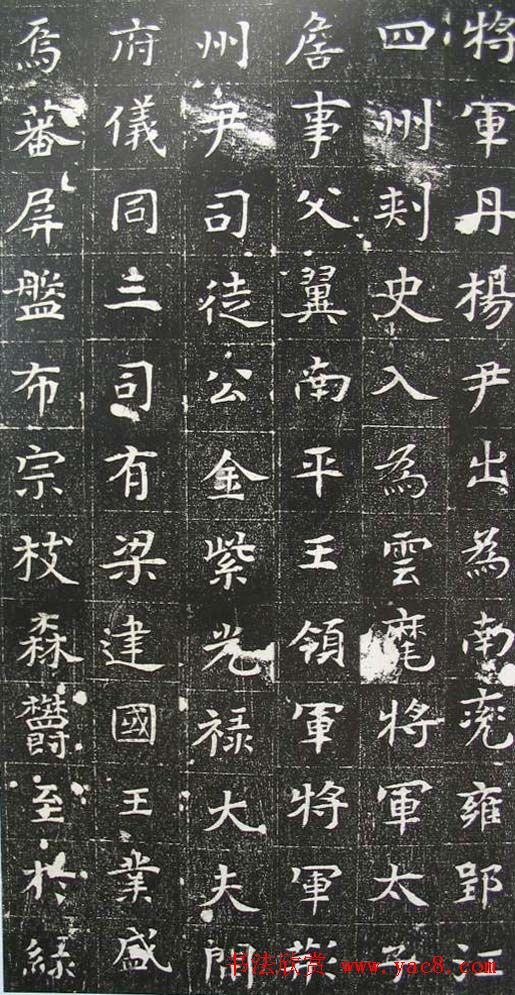 將軍丹楊尹出為南兖雍郢江
四州刾史入為雲麾將軍太子
詹事父翼南平王領軍將軍
州尹司徒公金紫光禄大夫開
府儀同三司有梁建國王業盛
焉蕃屏盤布宗枝森欝至於緑
书法欣赏 www.yac8.com